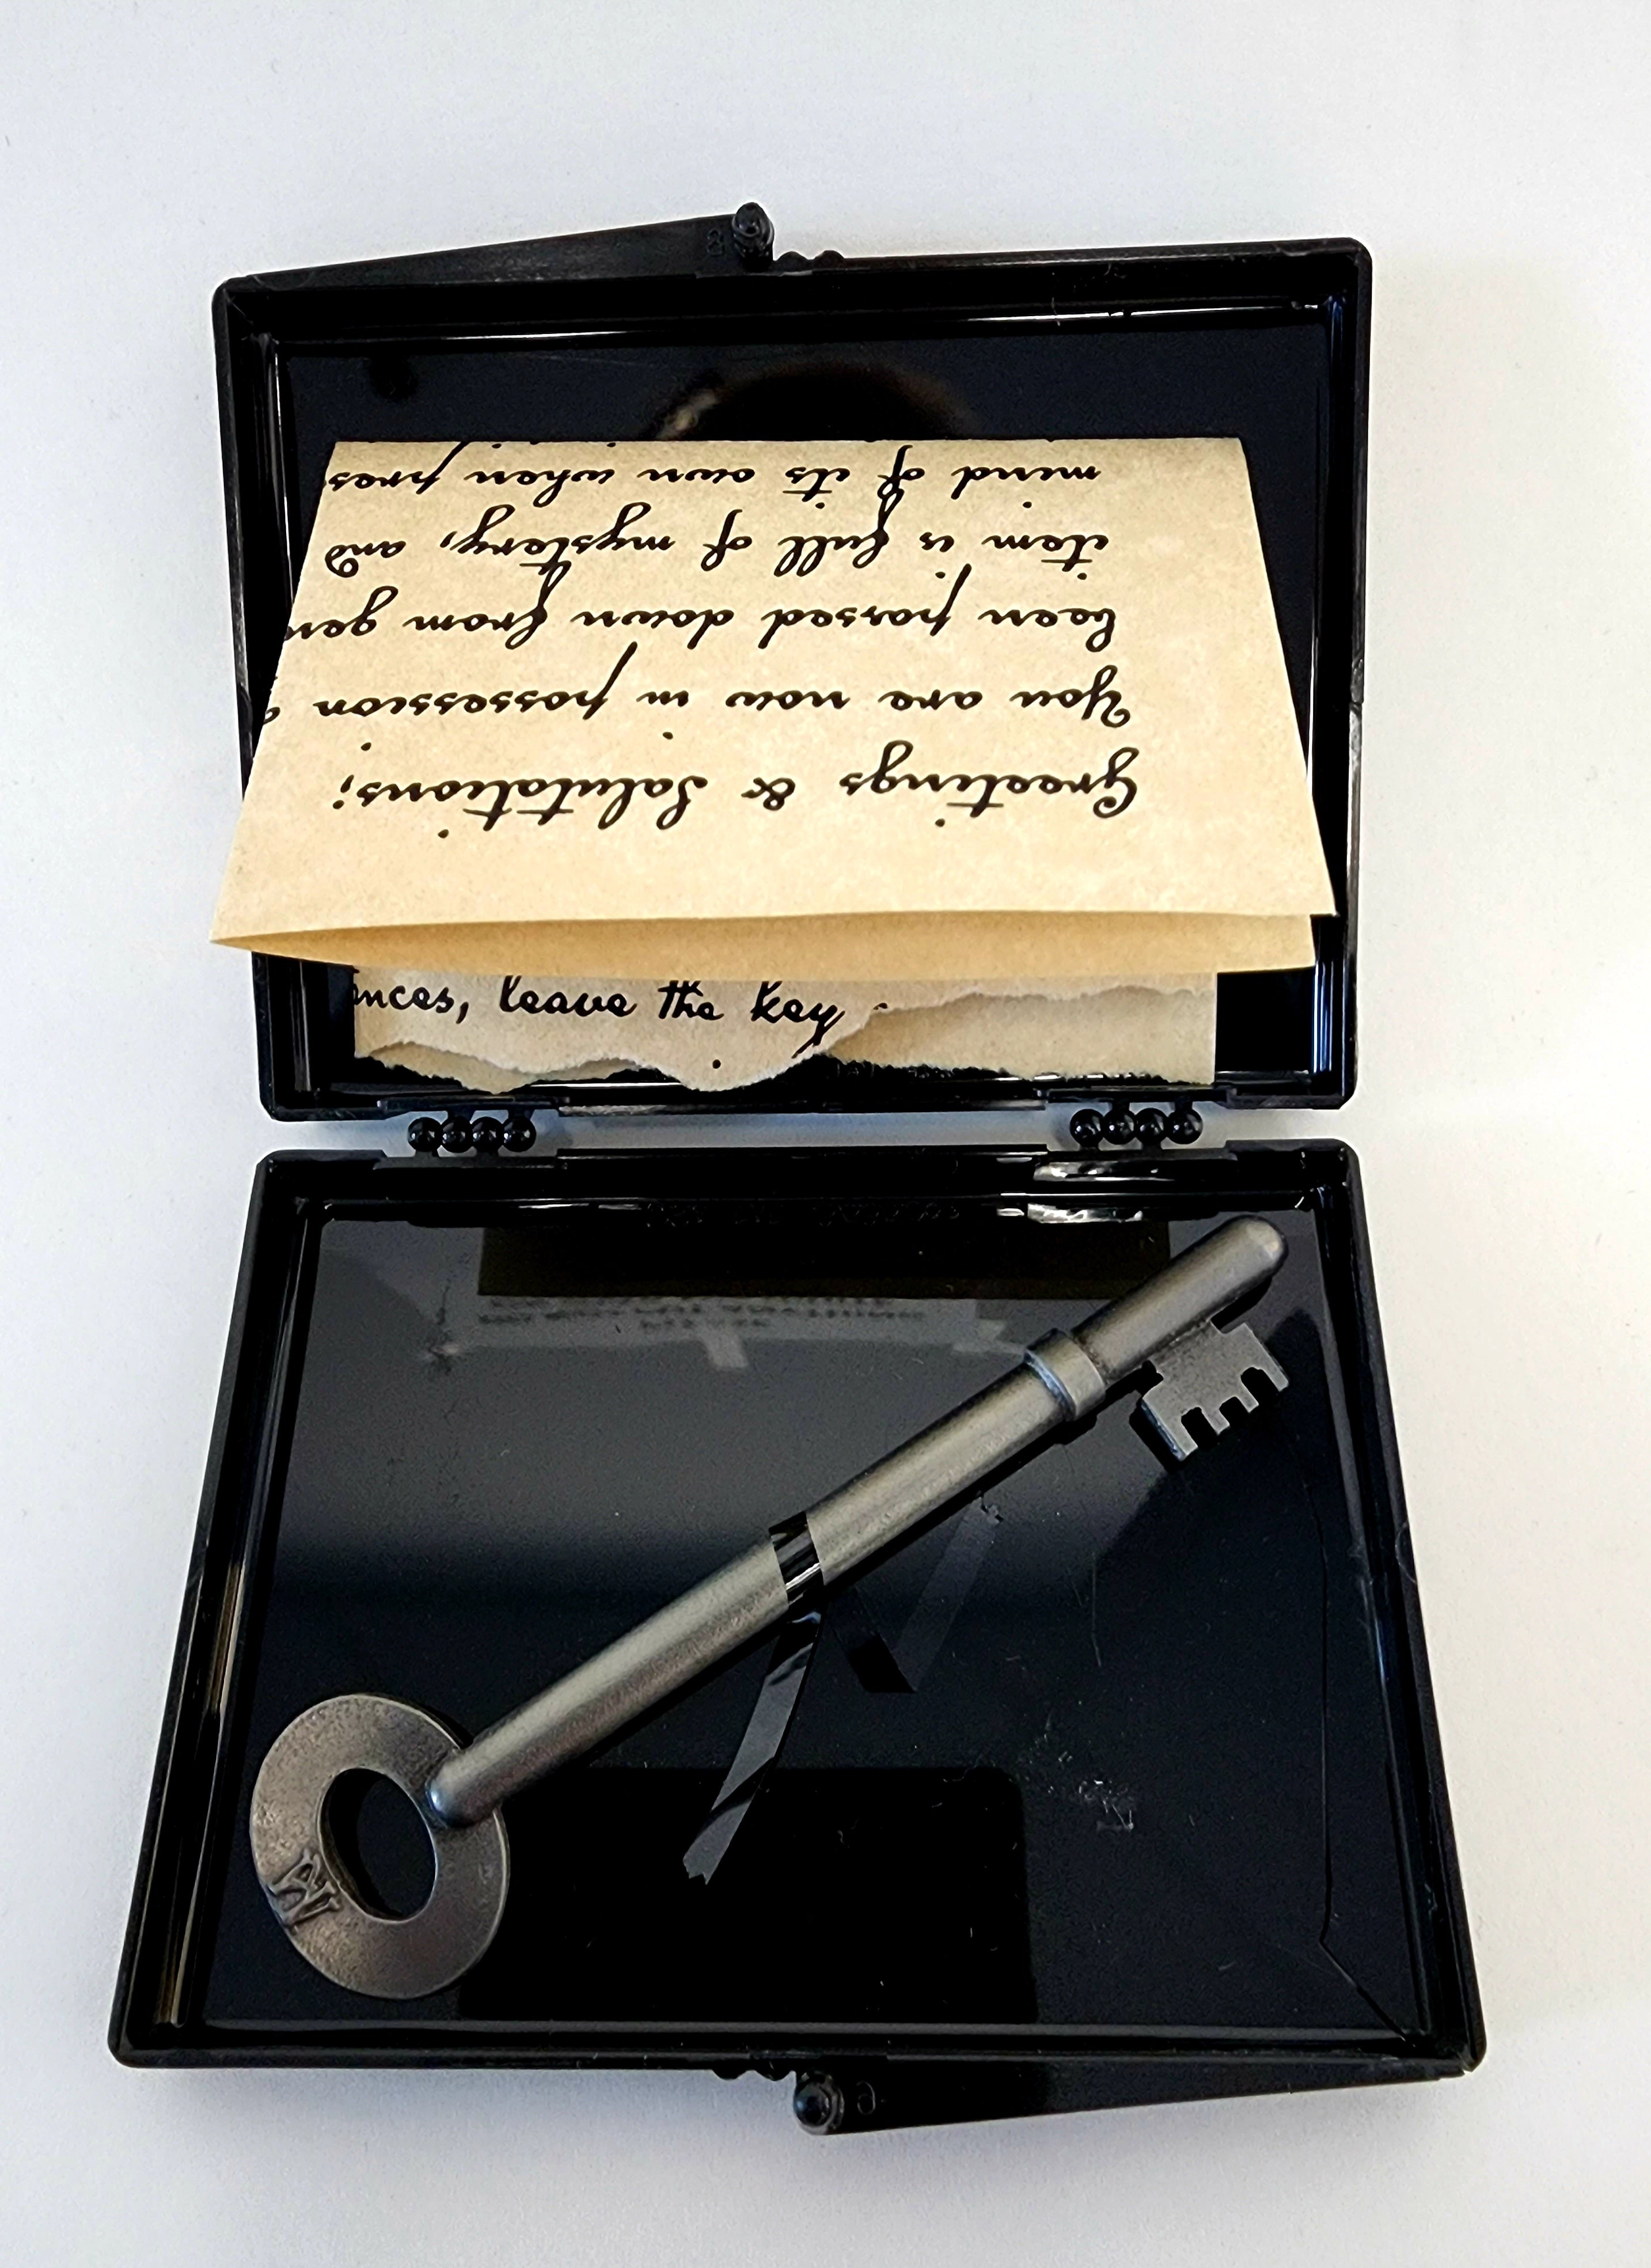 Greetings & Salutations;
You are now in possession
been passed down from gen
item is full of mystery, and
mind of its own when pres
ances, leave the key
M